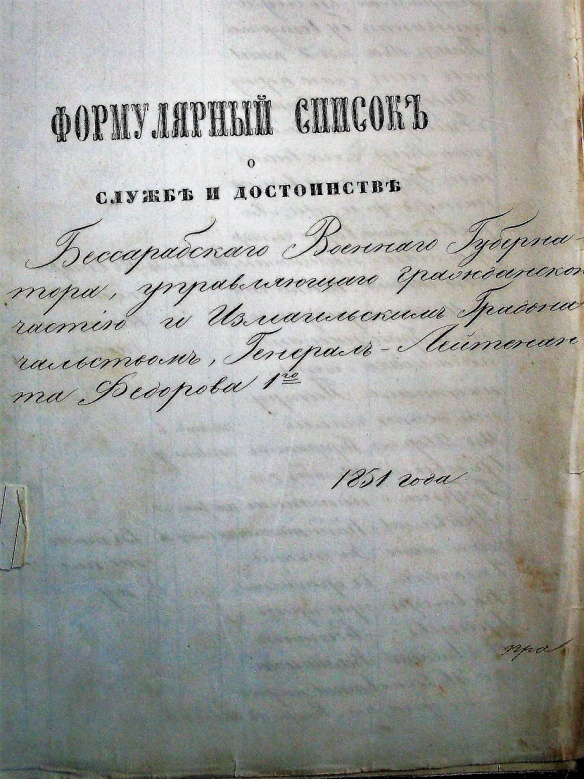 ФОРМУЛЯРНЫЙ СПИСОКЪ
О
СЛУЖБѢ И ДОСТОИНСТВѢ
Бессарабскаго Военнаго Губерна-
тора, управляющаго гражданскою
частію и Измаильскимъ Градона-
чальствомъ, Генералъ-Лейтенан
та Федорова 1го
1851 года